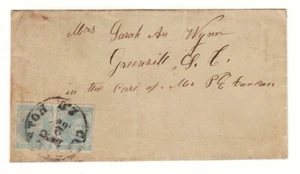 Mrs Sarah An Wynn
Greenville S. C.
in the Care of Mr P E Duncan